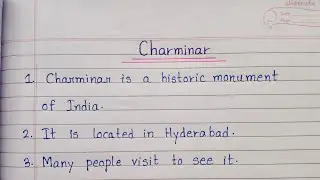 Charminar
1. Charminar is a historic monument
of India.
2. It is located in Hyderabad.
3. Many people visit to see it.